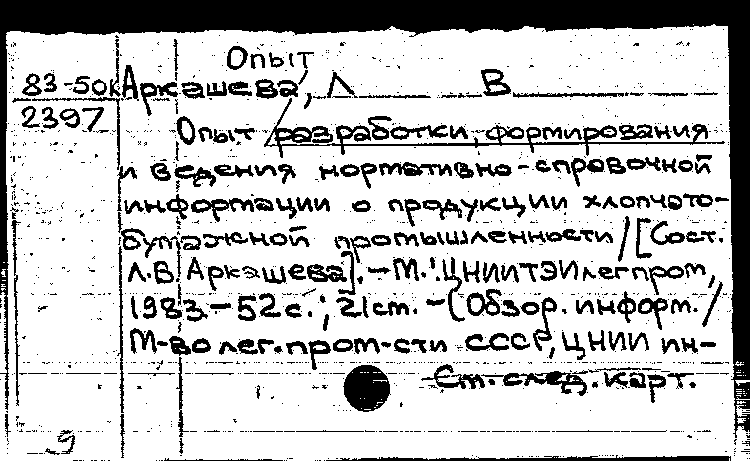 Опыт
83-50к Аркашева, Л В
2397
Опыт разработки, формирования
и ведения нормативно-справочной
информации о продукции хлопчато-
бумажной промышленности / [Сост.
Л.В. Аркашева]. — М.: ЦНИИТЭИлегпром,
1983. — 52 с.; 21 см. — (Обзор. информ. /
М-во лег. пром-сти СССР, ЦНИИ ин-
См. след. карт.
9